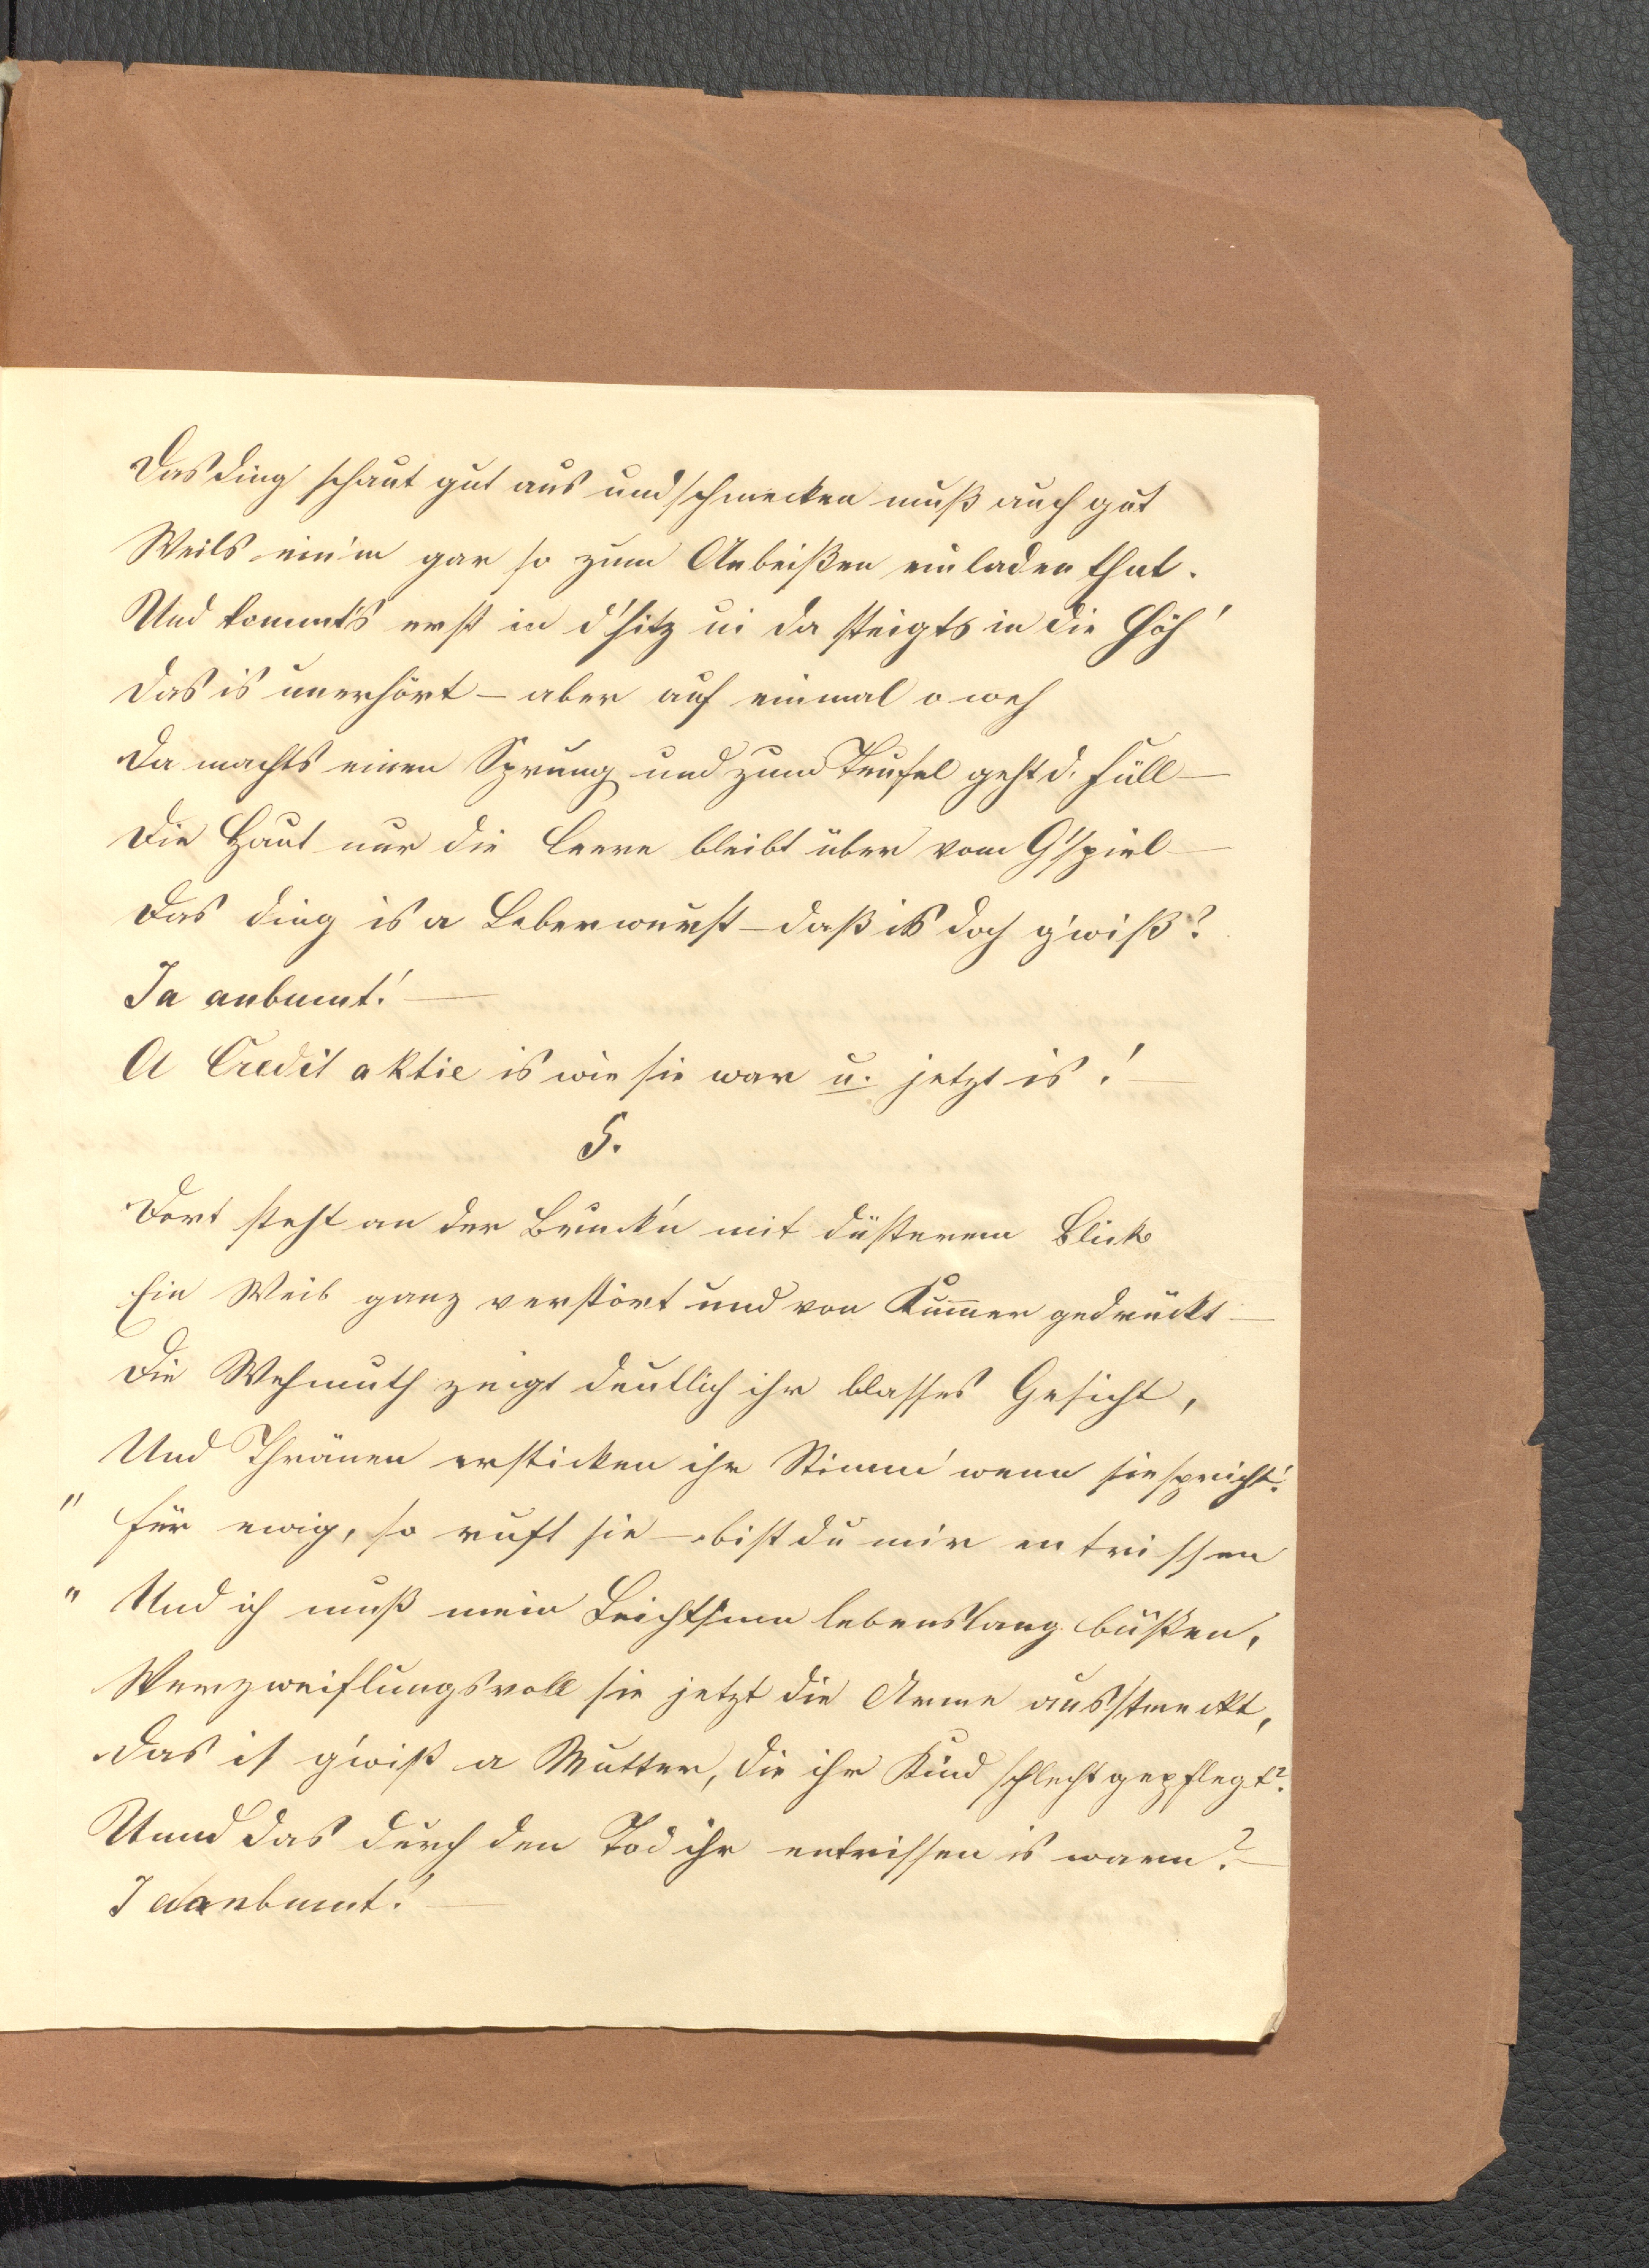 Das Ding schaut gut aus und schmecken muß auch gut
Weils ein'm gar so zum Anbeißen einladen thut.
Und kommt's erst in d'Hitz ui da steigts in die Höh'
Das is unerhört – aber auf einmal o weh
Da machts einen Sprung und zum Teufel geht d. Füll –
Die Haut nur die leere bleibt über vom G'spiel –
Das Ding is a Leberwurst – daß is doch g'wiß?
Ja anbumt! –
A Credit aktie is wie sie war u. jetzt is! –
5.
Dort steht an der Bruck'n mit düsterem Blick
Ein Weib ganz verstört und von Kum̄er gedrückt –
Die Wehmuth zeigt deutlich ihr blasses Gesicht,
Und Thränen ersticken ihr Stimm' wenn sie spricht!
" Für ewig, so ruft sie – bist du mir entrissen
" Und ich muß mein Leichtsinn lebenslang büßen,
Verzweiflungsvoll sie jetzt die Arme ausstreckt,
Das is g'wiß a Mutter, die ihr Kind schlecht gepflegt?
Unnd das durch den Tod ihr entrissen is warn? –
Ja anbumt! –